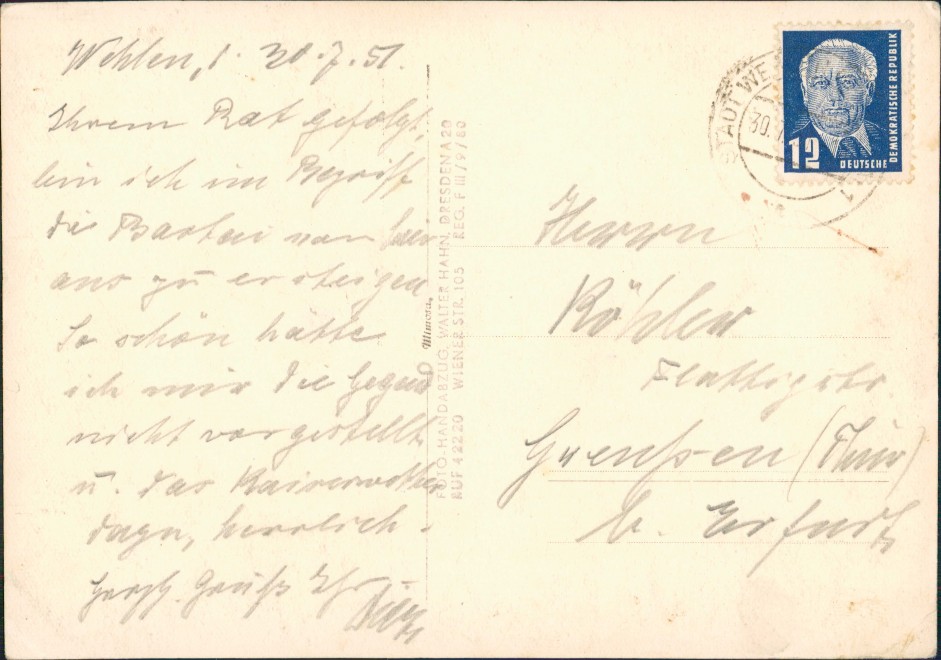 Wehlen, d. 30.7.51.
Ihrem Rat gefolgt
bin ich im Begriff
die Bastei von hier
aus zu ersteigen
So schön hätte
ich mir die Gegend
nicht vorgestellt
u. das Kaiserwetter
dazu, herrlich.
Herzl. Gruß Ihr
Mimosa
FOTO-HANDABZUG. WALTER HAHN, DRESDEN A 20
RUF 42220 WIENER STR. 105 REG. F III/9/80
STADT WE
30.
12
DEUTSCHE
DEMOKRATISCHE REPUBLIK
Herrn
Köhler
Greußen (Thür)
b. Erfurt